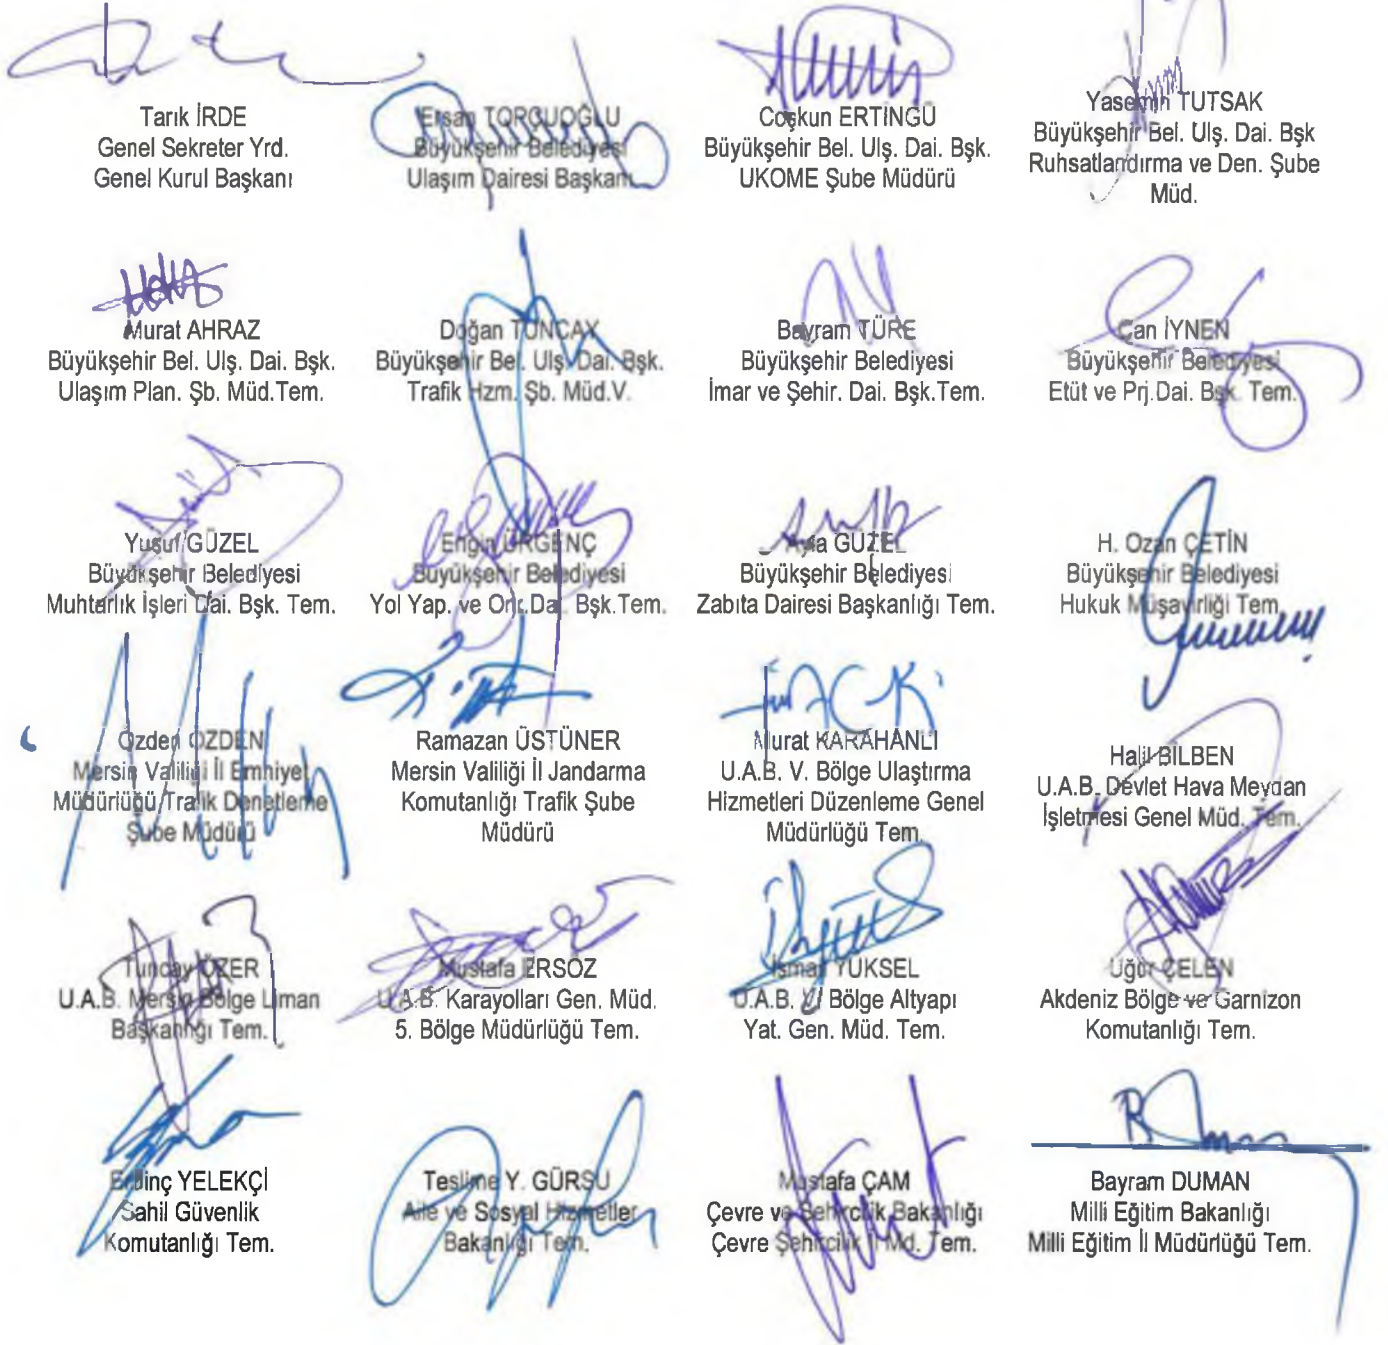 Tarık İRDE
Genel Sekreter Yrd.
Genel Kurul Başkanı
Ersan TOPÇUOĞLU
Büyükşehir Belediyesi
Ulaşım Dairesi Başkanı
Coşkun ERTİNGÜ
Büyükşehir Bel. Ulş. Dai. Bşk.
UKOME Şube Müdürü
Yasemin TUTSAK
Büyükşehir Bel. Ulş. Dai. Bşk
Ruhsatlandırma ve Den. Şube
Müd.
Murat AHRAZ
Büyükşehir Bel. Ulş. Dai. Bşk.
Ulaşım Plan. Şb. Müd.Tem.
Doğan TUNCAY
Büyükşehir Bel. Ulş. Dai. Bşk.
Trafik Hzm. Şb. Müd.V.
Bayram TÜRE
Büyükşehir Belediyesi
İmar ve Şehir. Dai. Bşk.Tem.
Can İYNEN
Büyükşehir Belediyesi
Etüt ve Prj.Dai. Bşk. Tem.
Yusuf GÜZEL
Büyükşehir Belediyesi
Muhtarlık İşleri Dai. Bşk. Tem.
Engin ÜRGENÇ
Büyükşehir Belediyesi
Yol Yap. ve Onr.Dai. Bşk.Tem.
GÜZEL
Büyükşehir Belediyesi
Zabıta Dairesi Başkanlığı Tem.
H. Ozan ÇETİN
Büyükşehir Belediyesi
Hukuk Müşavirliği Tem.
Özden ÖZDEN
Mersin Valiliği İl Emniyet
Müdürlüğü Trafik Denetleme
Şube Müdürü
Ramazan ÜSTÜNER
Mersin Valiliği İl Jandarma
Komutanlığı Trafik Şube
Müdürü
Murat KARAHANLI
U.A.B. V. Bölge Ulaştırma
Hizmetleri Düzenleme Genel
Müdürlüğü Tem.
Halil BİLBEN
U.A.B. Devlet Hava Meydan
İşletmesi Genel Müd. Tem.
Tuncay ÖZER
U.A.B. Mersin Bölge Liman
Başkanlığı Tem.
Mustafa ERSÖZ
U.A.B. Karayolları Gen. Müd.
5. Bölge Müdürlüğü Tem.
İsmail YÜKSEL
U.A.B. Bölge Altyapı
Yat. Gen. Müd. Tem.
Uğur ÇELEN
Akdeniz Bölge ve Garnizon
Komutanlığı Tem.
YELEKÇİ
Sahil Güvenlik
Komutanlığı Tem.
Teslime Y. GÜRSU
Aile ve Sosyal Hizmetler
Bakanlığı Tem.
Mustafa ÇAM
Çevre ve Şehircilik Bakanlığı
Çevre Şehircilik İl Md. Tem.
Bayram DUMAN
Milli Eğitim Bakanlığı
Milli Eğitim İl Müdürlüğü Tem.